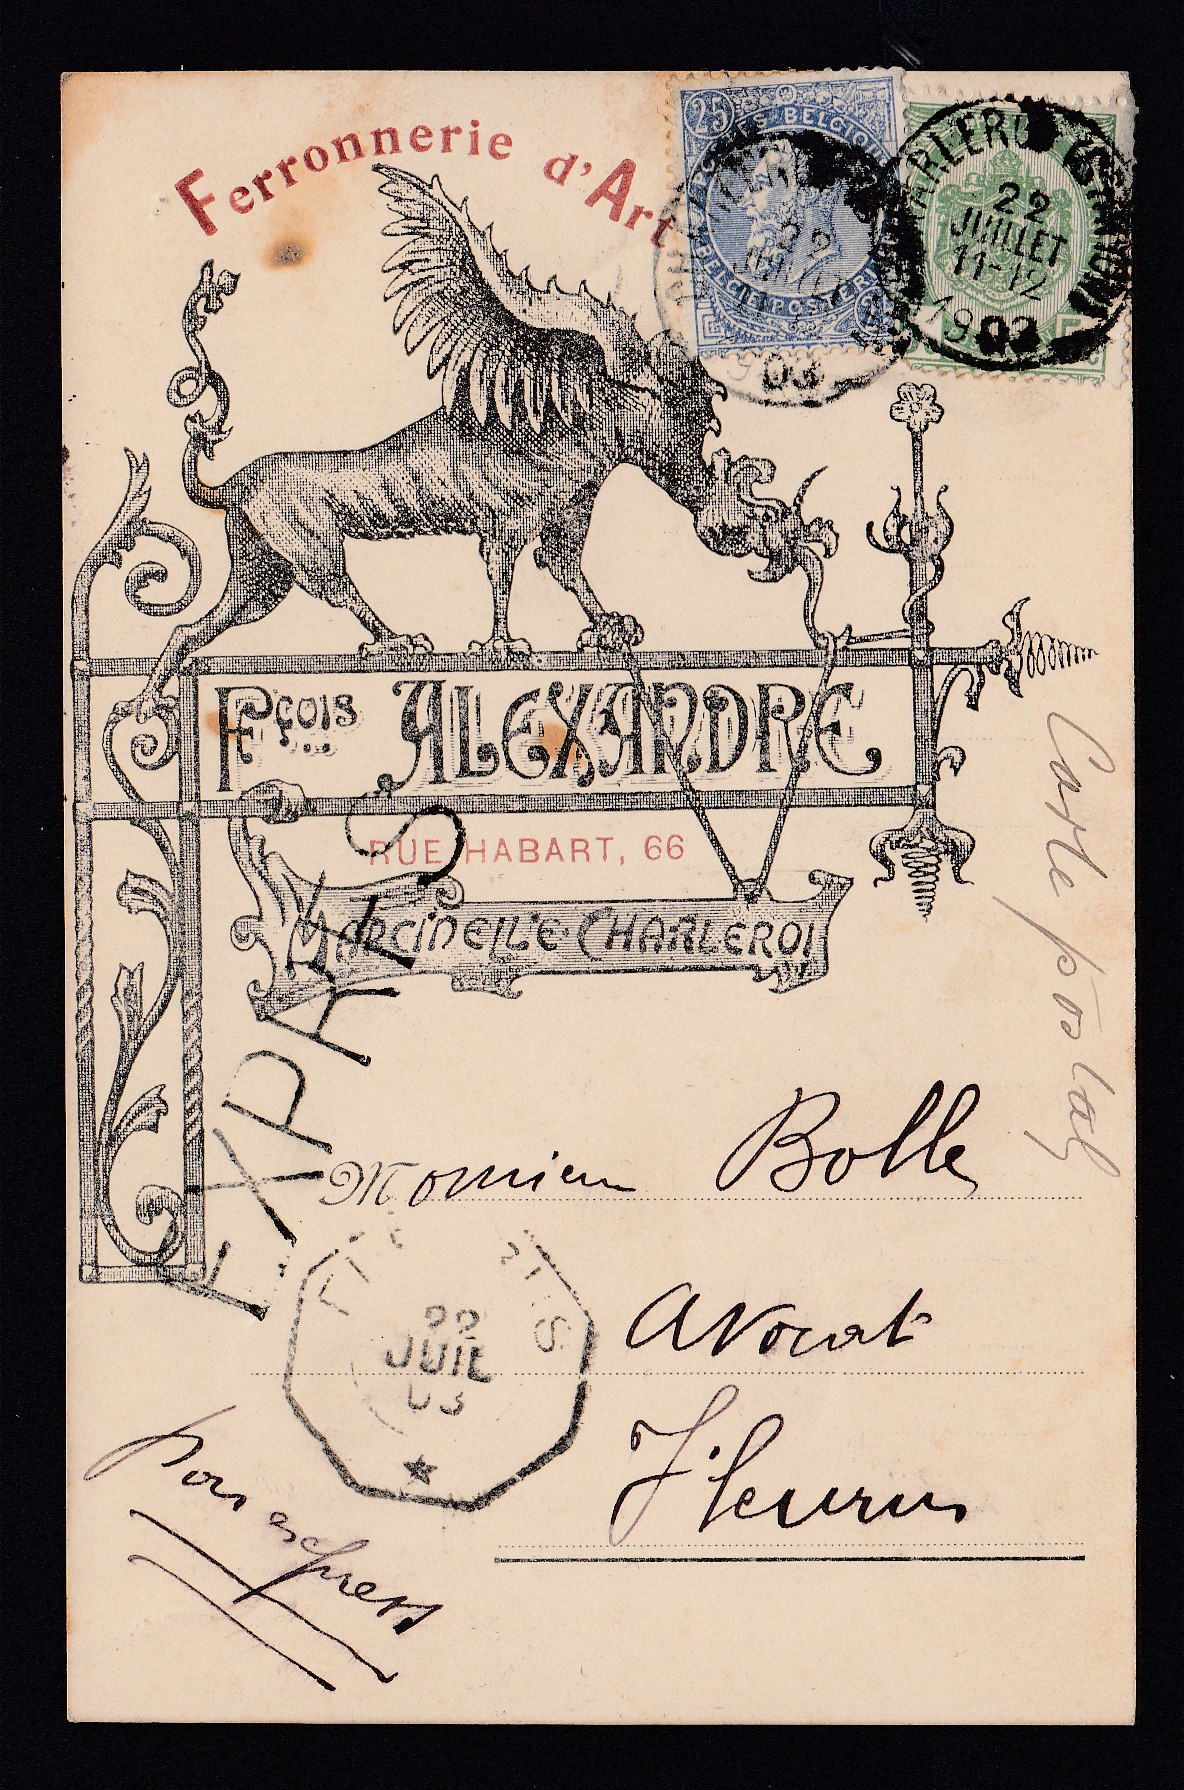 Ferronnerie d'Art
25
POSTES BELGIQUE
BELGIE POSTERIJEN
CHARLEROI (STATION)
22
JUILLET
11-12
1903
Fçois ALEXANDRE
RUE HABART, 66
MARCINELLE-CHARLEROI
EXPRÈS
Carte postale
Monsieur Bolle
Avocat
Fleurus
22
JUIL
03
par express